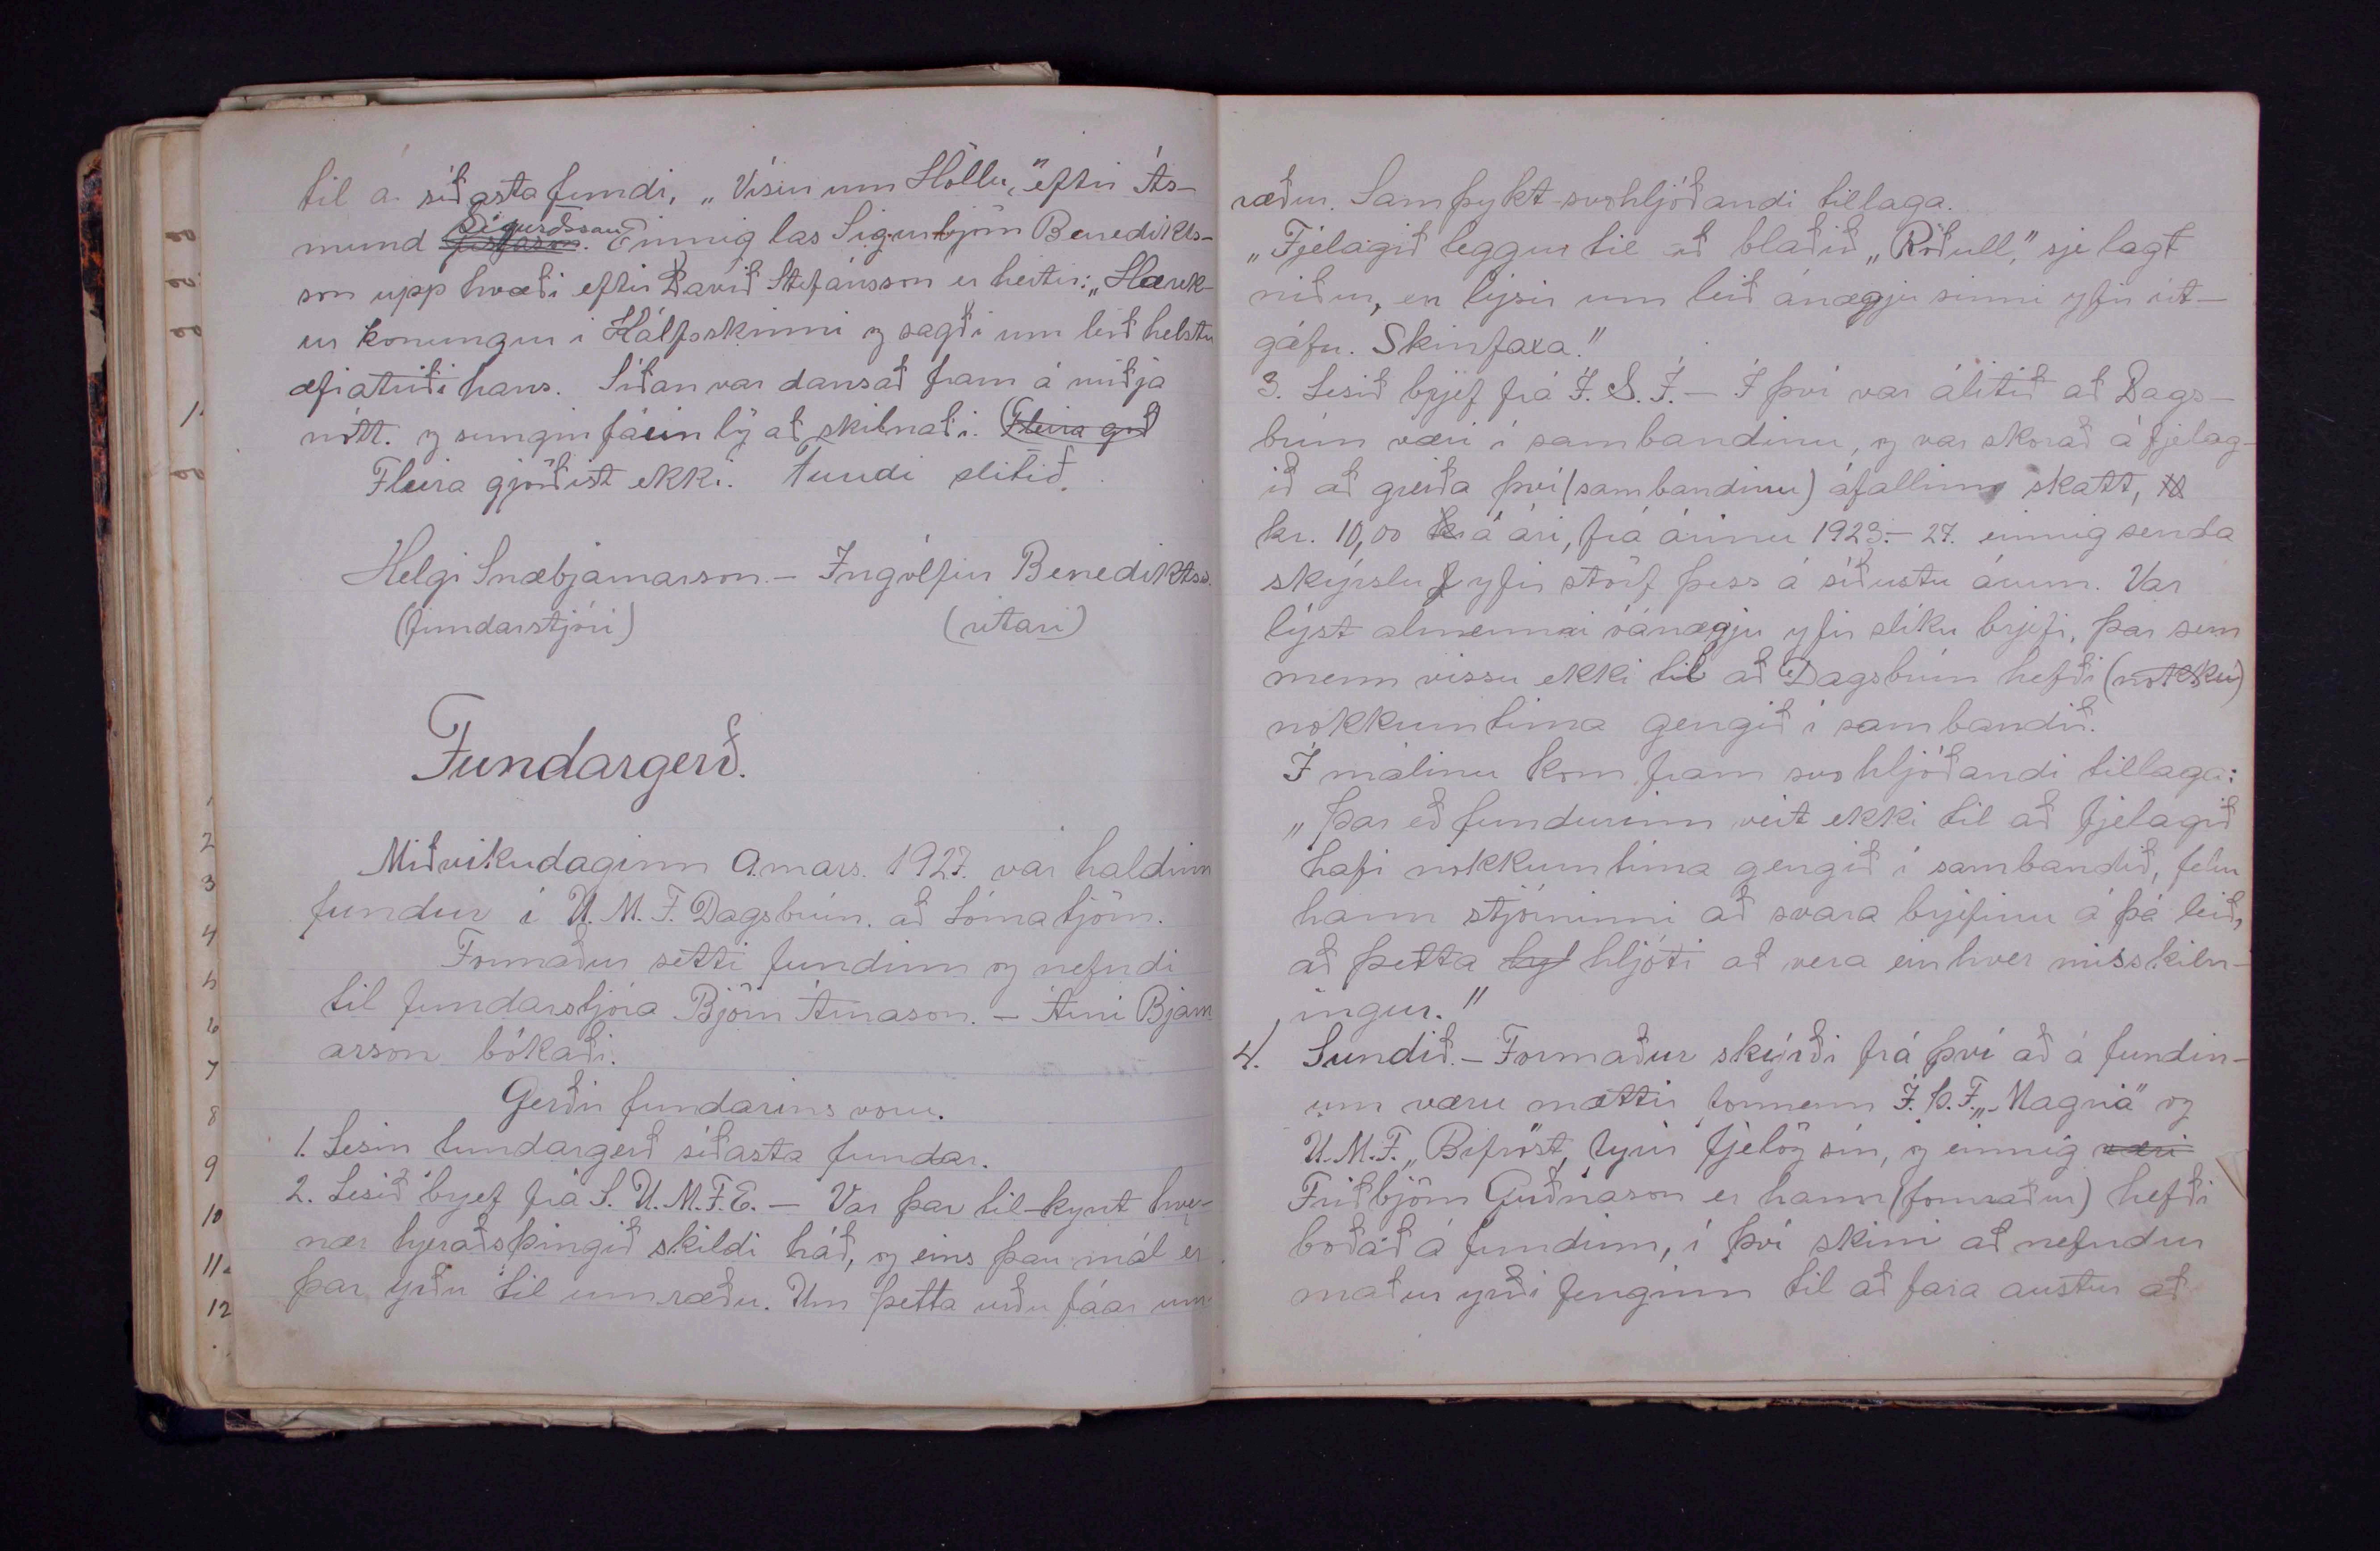 til á síðasta fundi, „Vísin um Höllu," eftir Ás-
mund Sigurdssan. Einnig las Sigurbjörn Benedikts-
son upp kvæði eftir Davíð Stefánsson er heitir: „Hærek-
ur konungur í Hálfsskinni og sagði um leið helstu
æfiatriði hans. Síðan var dansað fram á miðja
nótt. og sungin fáein lög að skilnaði. (Fleira gerð
Fleira gjörðist ekki. Fundi slitið.
Helgi Snæbjarnarson. – Ingólfur Benediktss.
(fundarstjóri) (ritari)
Fundargerð.
Miðvikudaginn 9. mars. 1927. var haldinn
fundur í U. M. F. Dagsbrún. að Lómatjörn.
Formaður setti fundinn og nefndi
til fundarstjóra Björn Árnason. – Árni Bjarn
arson bókaði.
Gerðir fundarins voru.
1. Lesin fundargerð síðasta fundar.
2. Lesið brjef frá S. U. M. F. E. – Var þar til-kynt hve-
nær hjeraðsþingið skildi háð, og eins þau mál er
þar yrðu til umræðu. Um þetta urðu fáar um-
ræður. Samþykt svohljóðandi tillaga.
„Fjelagið leggur til að blaðið „Röðull," sje lagt
niður, en lýsir um leið ánægju sinni yfir út-
gáfu. Skinfaxa."
3. Lesið brjef frá Í. S. Í. – Í því var álitið að Dags-
brún væri í sambandinu, og var skorað á fjelag-
ið að greiða því (sambandinu) áfallinn skatt, 10
kr. 10,00 kr á ári, frá árinu 1923.– 27. einnig senda
skýrslu f yfir störf þess á síðustu árum. Var
lýst almennri óánægju yfir slíku brjefi, þar sem
menn vissu ekki til að Dagsbrún hefði (nokku)
nokkurntíma gengið í sambandið.
Í málinu kom fram svohljóðandi tillaga:
„Þar eð fundurinn veit ekki til að fjelagið
hafi nokkurntíma gengið í sambandið, felur
hann stjórninni að svara brjefinu á þá leið,
að þetta hyl hljóti að vera einhver misskiln-
ingur."
4. Sundið. – Formaður skýrði frá því að á fundin-
um væru mættir formenn Í. Þ. F. „Magni" og
U. M. F. „Bifröst, fyrir fjelög sín, og einnig væri
Friðbjörn Guðnason er hann (formaður) hefði
boðað á fundinn, í því skini að nefndur
maður yrði fenginn til að fara austur að